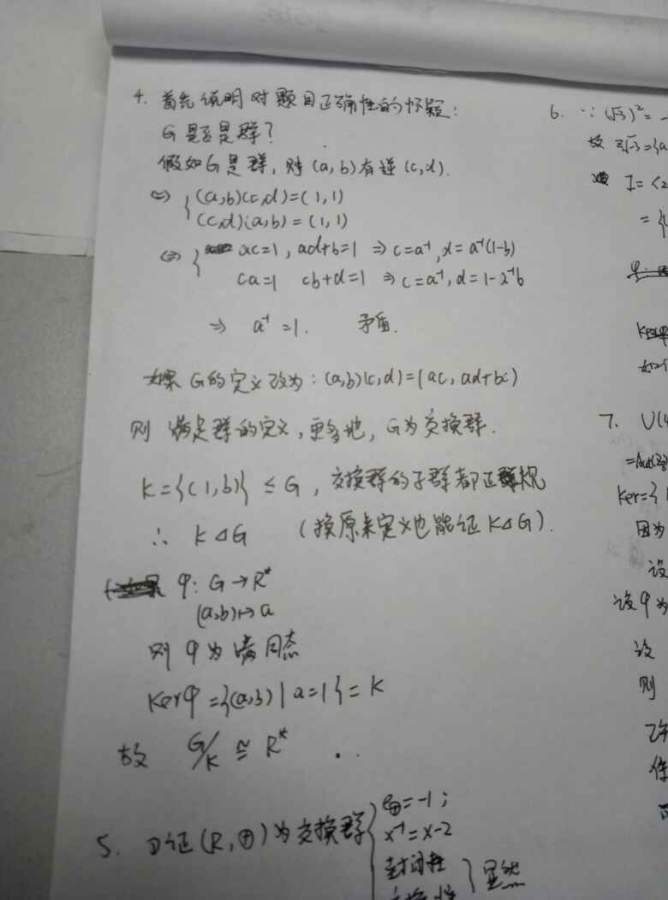 4. 首先说明对题目正确性的怀疑:
G是否是群?
假如G是群, 则(a,b)有逆(c,d).
⇔ { (a,b)(c,d)=(1,1)
(c,d)(a,b)=(1,1)
⇔ { ac=1, ad+b=1 ⇒ c=a⁻¹, d=a⁻¹(1-b)
ca=1 cb+d=1 ⇒ c=a⁻¹, d=1-a⁻¹b
⇒ a⁻¹=1. 矛盾.
如果G的定义改为: (a,b)(c,d)=(ac, ad+bc)
则满足群的定义, 更多地, G为交换群.
K={(1,b)} ≤ G, 交换群的子群都正规
∴ K⊲G (按原来定义也能证K⊲G).
φ: G→R*
(a,b)↦a
则φ为满同态
Kerφ={(a,b)|a=1}=K
故 G/K ≅ R*
5. 证(R,⊕)为交换群 { e⊕=-1;
x⁻¹=x-2
封闭性
} 显然
6. ∵ (√3)²=
故
I=<2
=
7. U(
Ker={
因为
设
设φ为
设
则